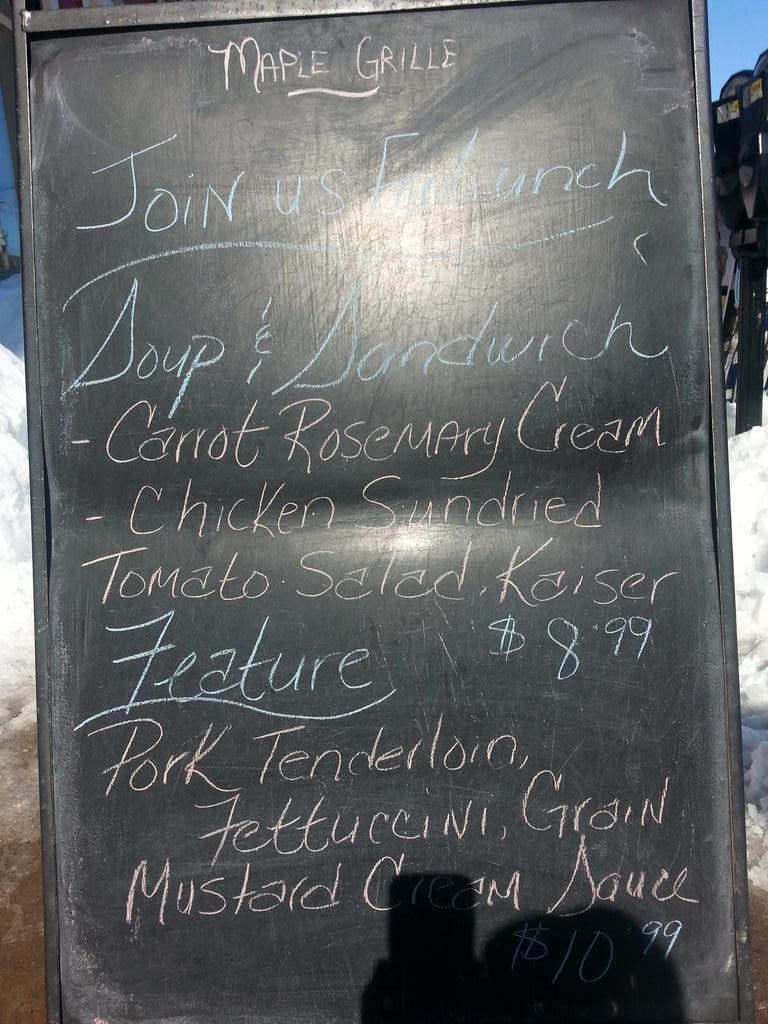 MAPLE GRILLE
Join us For Lunch
Soup & Sandwich
- Carrot Rosemary Cream
- Chicken Sundried
Tomato Salad, Kaiser
$ 8.99
Feature
Pork Tenderloin,
Fettuccini, Grain
Mustard Cream Sauce
$10.99